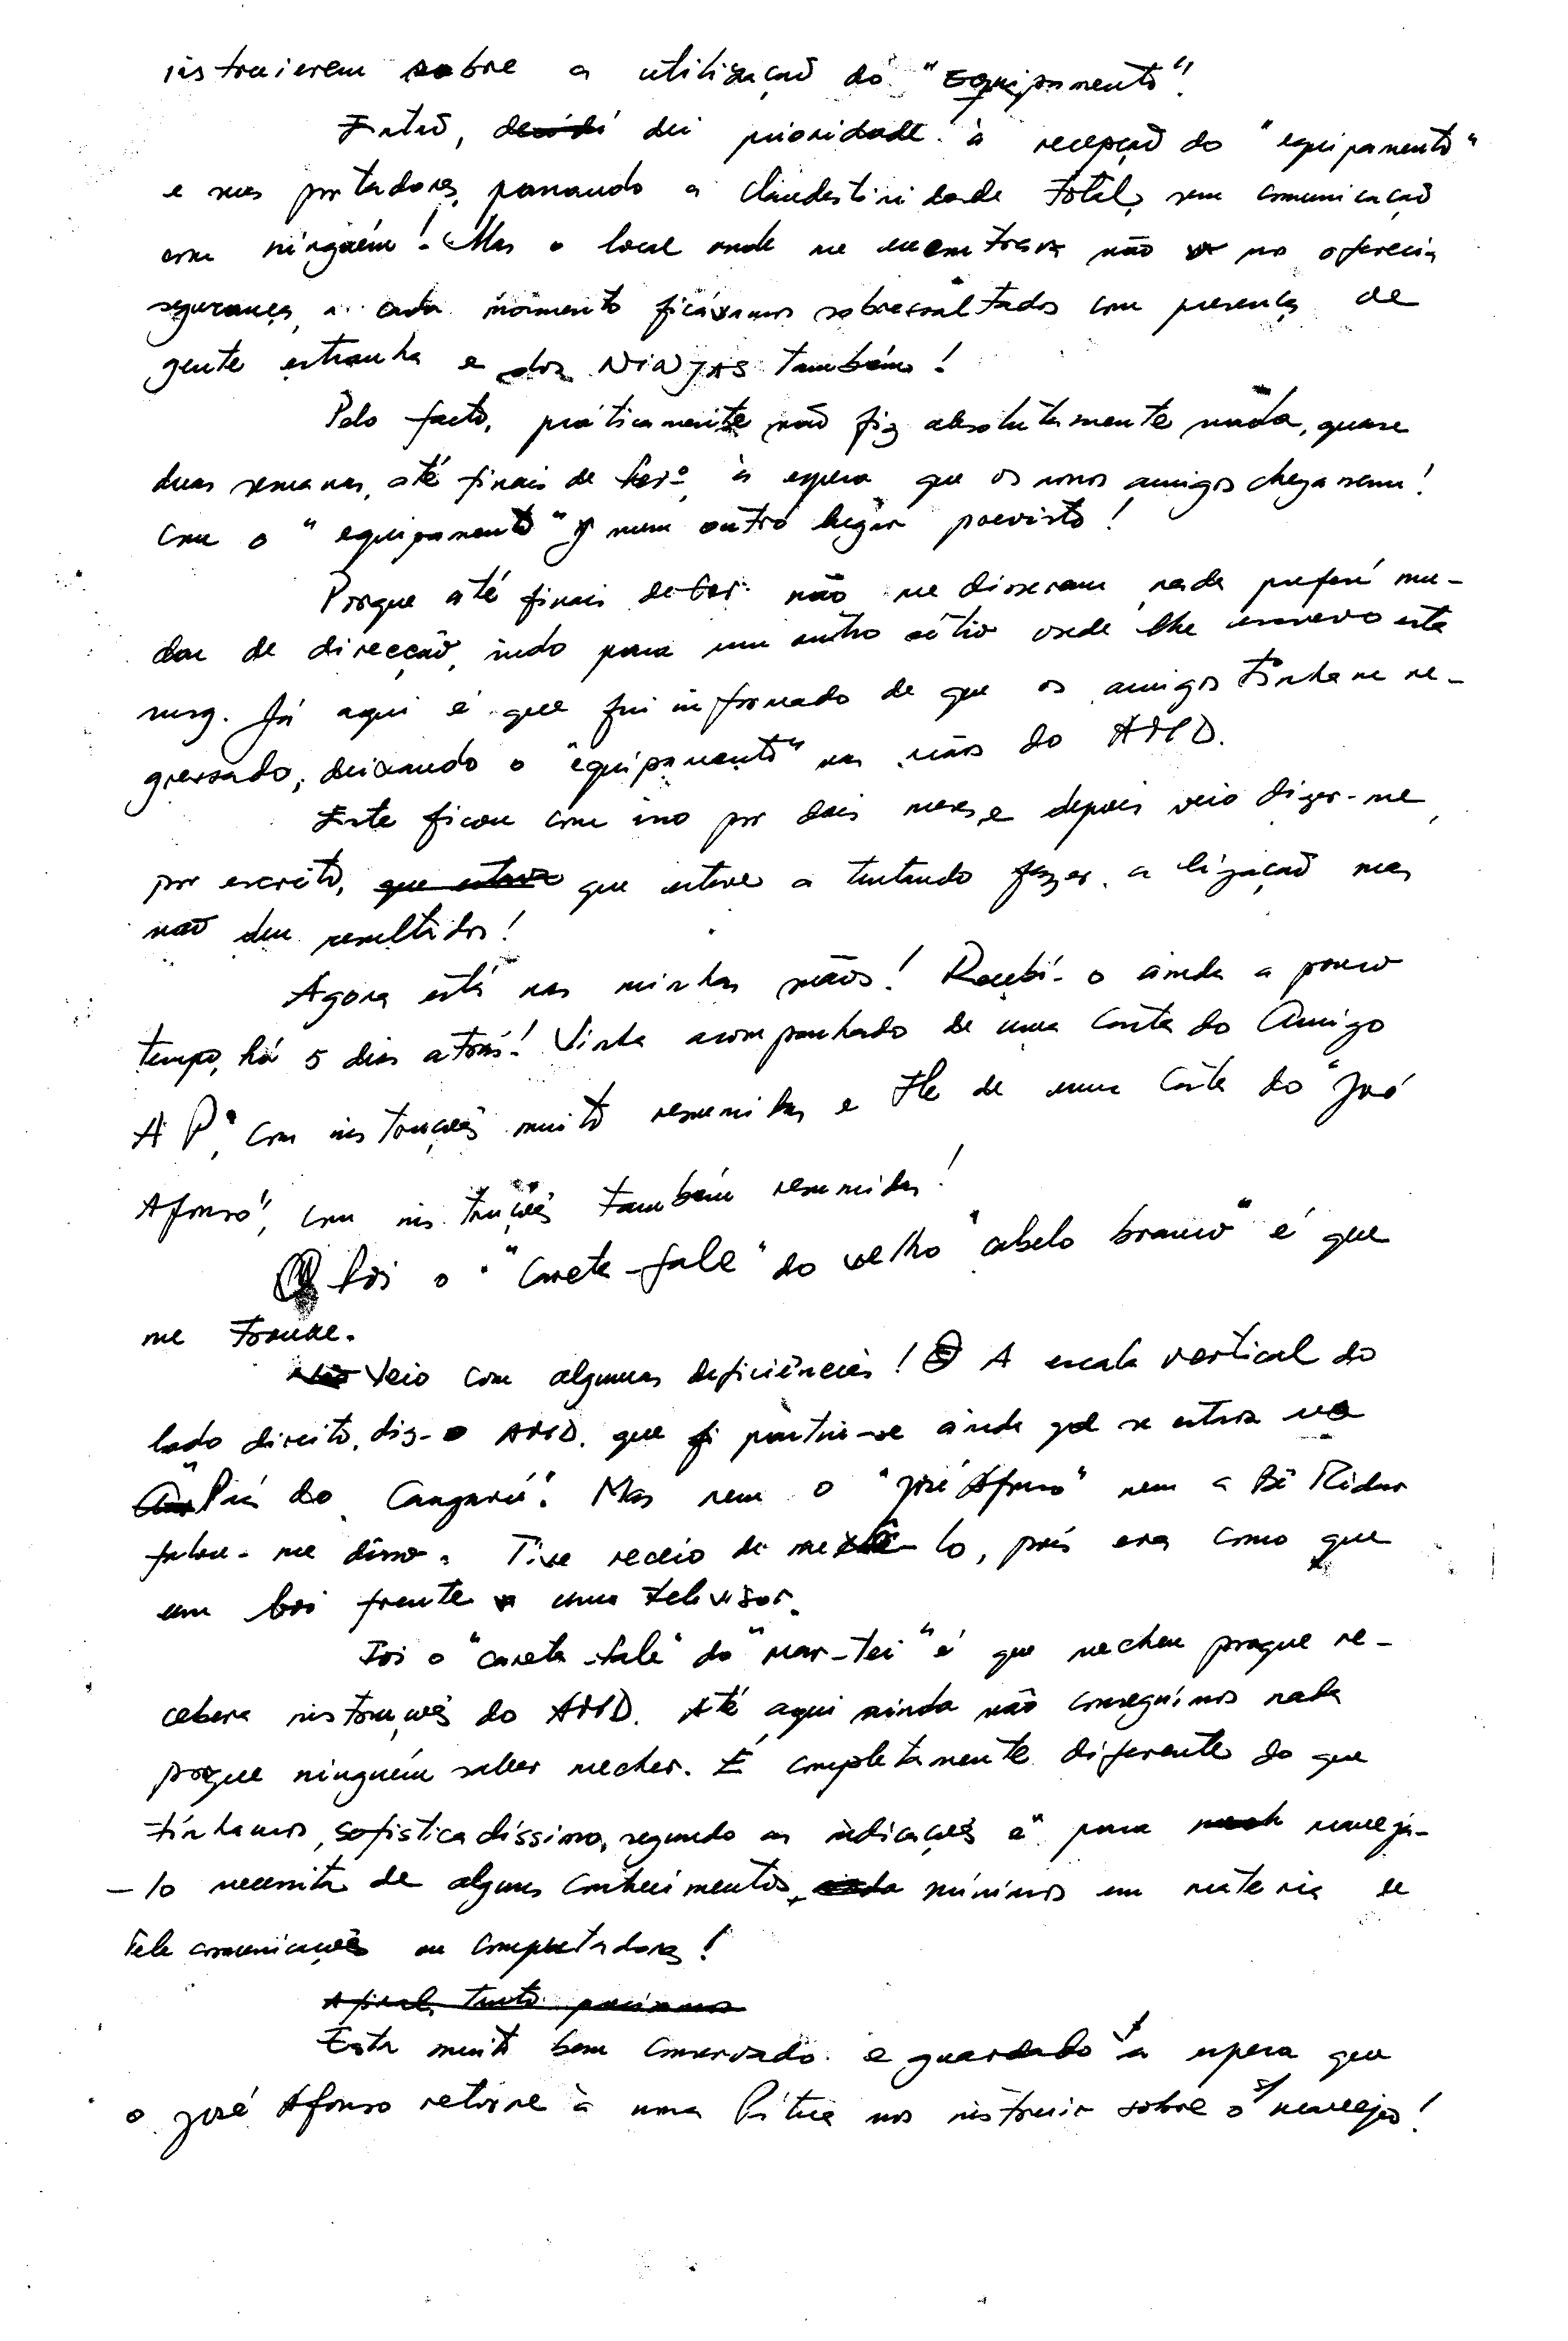 instruierem sobre a utilização do "Equipamento".
Então, decidi dei prioridade à recepção do "equipamento"
e seus portadores, passando a clandestinidade total, sem comunicação
com ninguém! Mas o local onde me encontrava não nos oferecia
segurança, a cada momento ficávamos sobressaltados com presença de
gente estranha e dos NINJAS também!
Pelo facto, práticamente não fiz absolutamente nada, quase
duas semanas, até finais de Fev.º, à espera que os novos amigos chegassem!
com o "equipamento" num outro lugar previsto!
Porque até finais de Fev. não me disseram nada preferí mu-
dar de direcção, indo para um outro sítio onde lhe escrevo esta
msg. Já aqui é que fui informado de que os amigos tinham re-
gressado, deixando o "equipamento" nas mãos do AMD.
Este ficou com isso por dois meses e depois veio dizer-me,
por escrito, que estava que esteve a tentando fazer a ligação mas
não deu resultados!
Agora está nas minhas mãos! Recebí-o ainda a pouco
tempo, há 5 dias atrás! Vinha acompanhado de uma Carta do Amigo
A P, com instruções muito resumidas e de uma Carta do "José
Afonso", com instruções também resumidas!
Foi o "Careta-fale" do velho "cabelo branco" é que
me trouxe.
Não Veio com algumas deficiências! A escala vertical do
lado direito, diz-o AMD. que partiu-se ainda qd se estava no
"País do Canguru". Mas nem o "José Afonso" nem a Bê Ridor
falou-me disso. Tive receio de mexê-lo, pois era como que
um boi frente a uma televisor.
Foi o "careta-fale" do "mar-tei" é que mecheu porque re-
cebera instruções do AMD. Até aqui ainda não conseguímos nada
porque ninguém saber mecher. É completamente diferente do que
tínhamos, sofisticadíssimo, segundo as indicações e para manejá-
-lo necessita de alguns conhecimentos mínimos em materia de
telecomunicações ou computadores!
Afinal, tanto
Está muito bem conservado e guardado à espera que
o José Afonso retorne à nossa Pátria nos instruir sobre o s/ manejo!